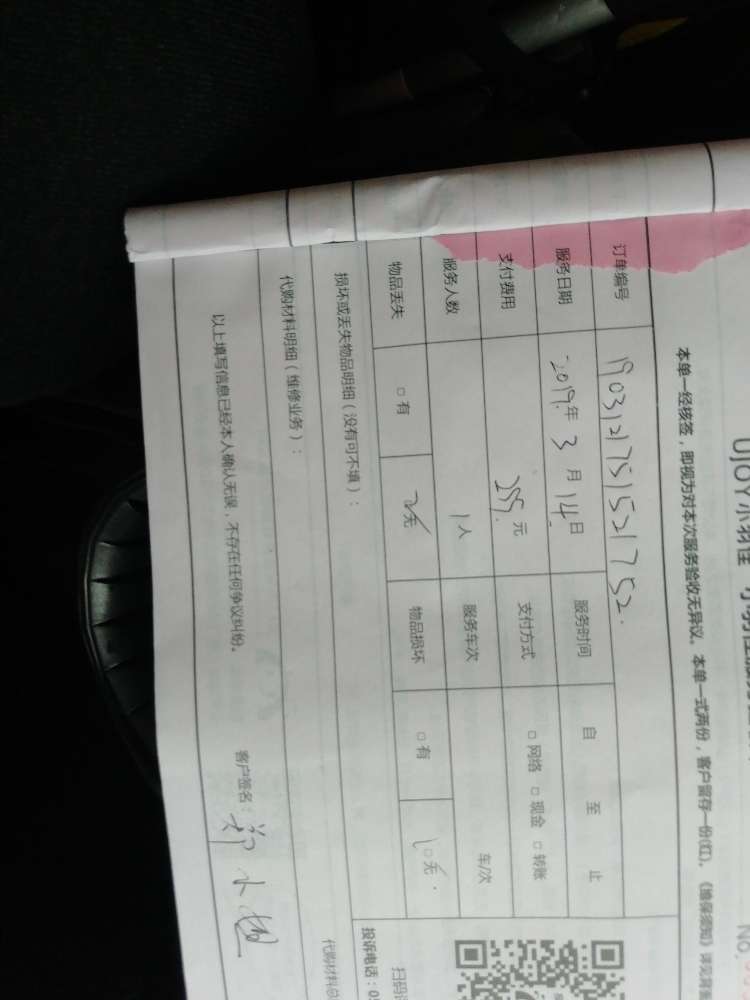 UJOY小羽佳
No.
本单一经核签，即视为对本次服务验收无异议。本单一式两份，客户留存一份(红)。《维保须知》详见背
订单编号 1903121751521752.
服务日期 2019.年 3 月 14.日 服务时间 自 至 止
支付费用 元 支付方式 □ 网络 □ 现金 □ 转账
服务人数 1 人 服务车次 车/次
物品丢失 □ 有 ☑无 物品损坏 □ 有 □ 无
损坏或丢失物品明细（没有可不填）：
代购材料明细（维修业务）：
以上填写信息已经本人确认无误，不存在任何争议纠纷。
客户签名：郑小
扫码
投诉电话：0
代购材料总